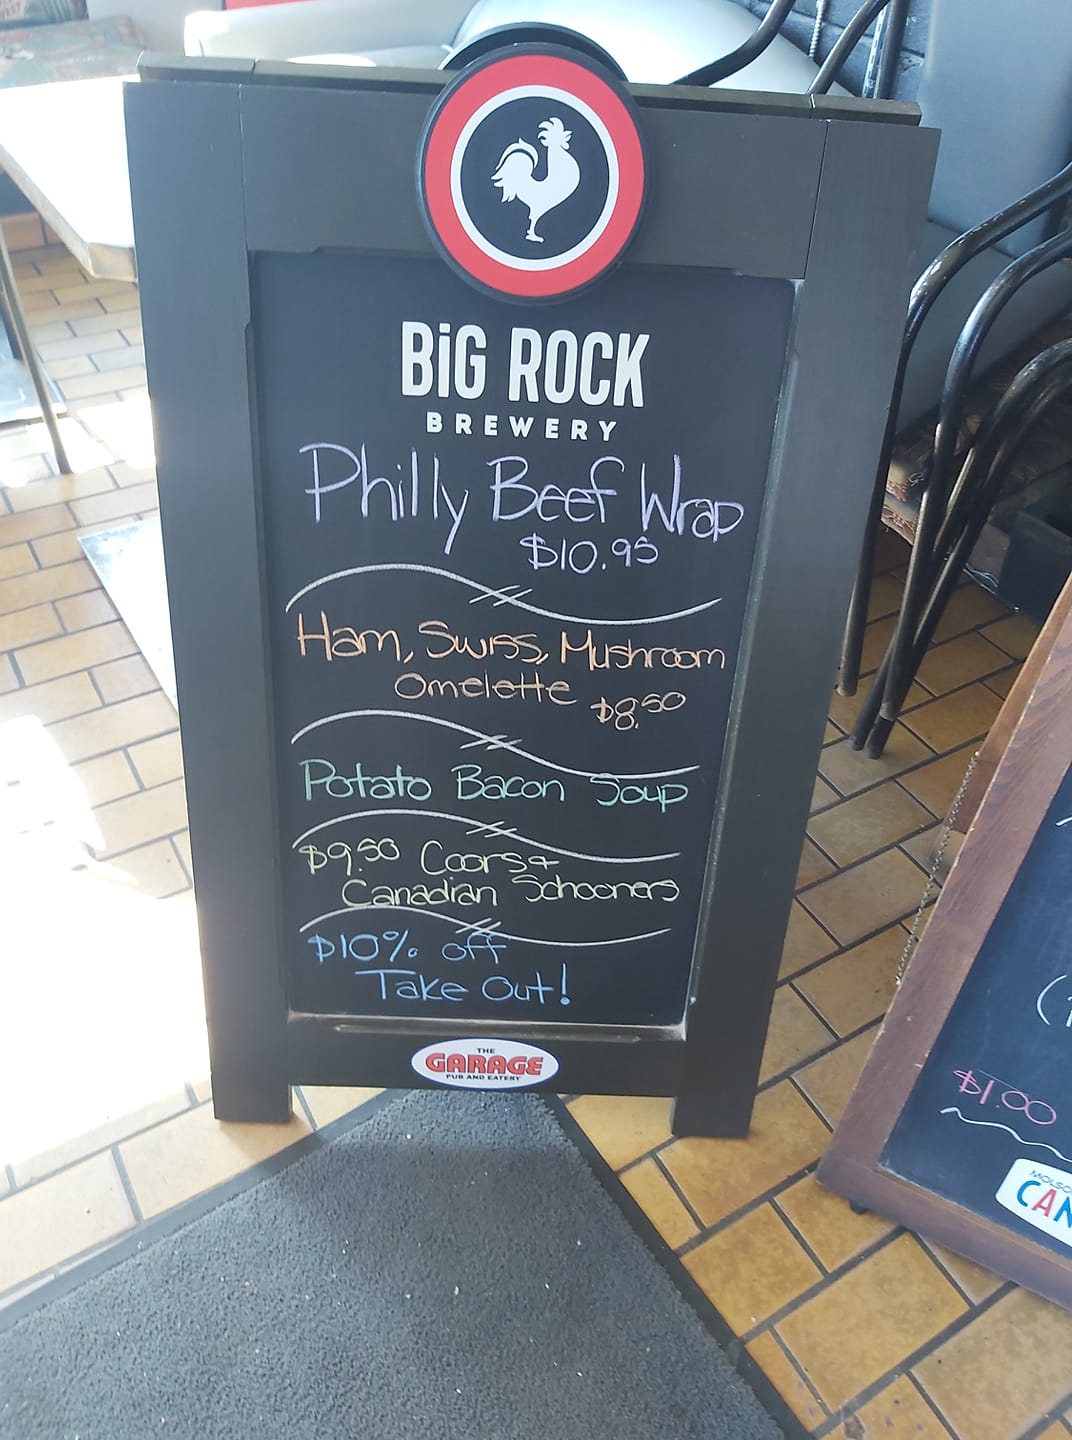 BiG ROCK
BREWERY
Philly Beef Wrap
$10.95
Ham, Swiss, Mushroom
Omelette $8.50
Potato Bacon Soup
$9.50 Coors &
Canadian Schooners
$10% off
Take Out!
THE
GARAGE
PUB AND EATERY
$1.00